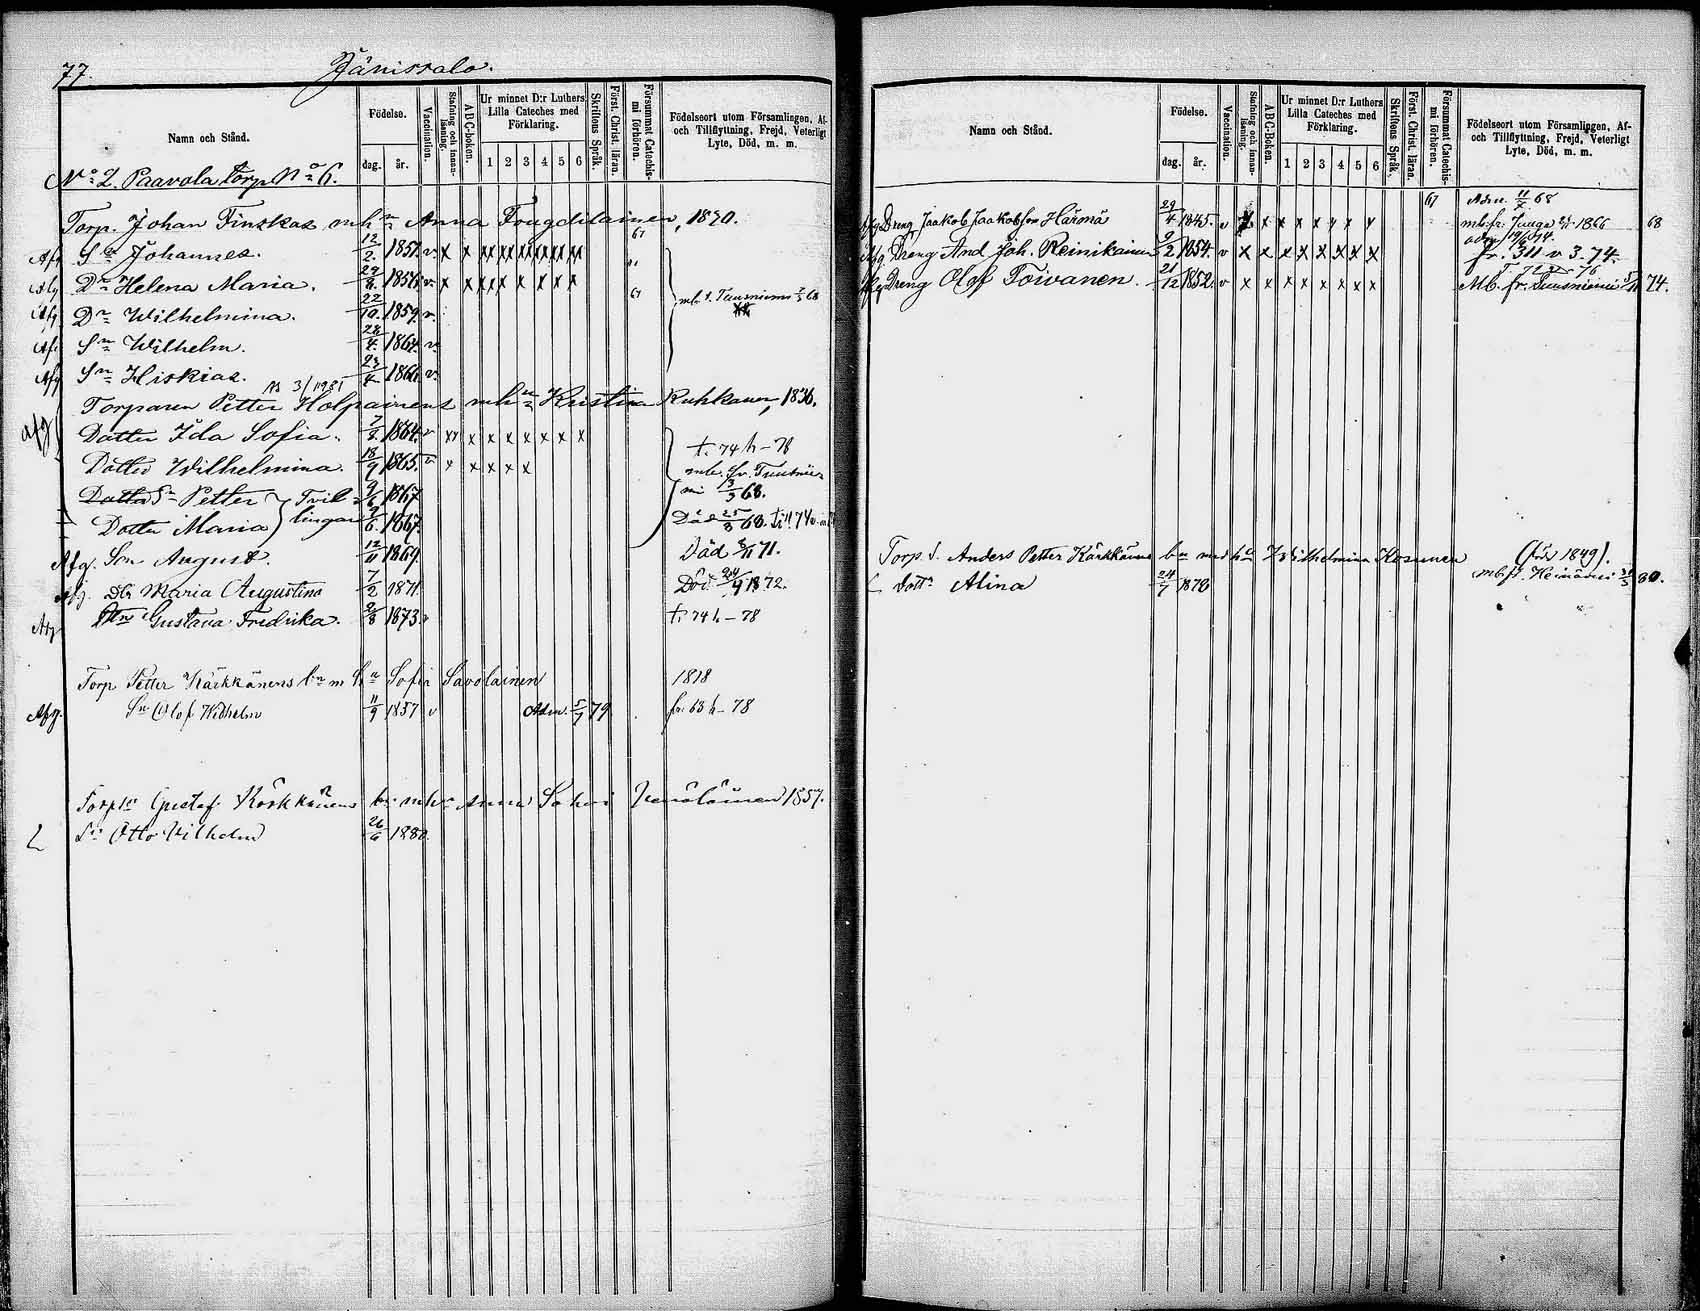 77. Jänissalo.
Namn och Stånd.
Födelse.
dag.
år.
Vaccination.
Stafning och innanläsning.
ABC-boken.
Ur minnet D:r Luthers Lilla Cateches med Förklaring.
1 2 3 4 5 6
Skriftens Språk.
Först. Christ. läran.
Försummat Catechismi förhören.
Födelseort utom Församlingen, Af- och Tillflyttning, Frejd, Veterligt Lyte, Död, m. m.
No 2. Paavola torp No 6.
Torp. Johan Finskas mhn Anna 1830.
67
Afg Sn Johannes. 12/2 1851. v. x x xx xx xx xx xx xx
Afg Dr Helena Maria. 29/8 1856. v. x x xx x x x x x
Afg Dr Wilhelmina. 22/10 1859. v. 67 mb. t. Tuusniemi 7/3 68
Afg Sn Wilhelm. 28/4 1864. v.
Afg Sn Hiskias. 23/4 1866. v.
Torparen Petter Holpainens mhn Kristina Ruhkanen, 1836.
Afg Dotter Ida Sofia. 7/2 1864. v xx x x x x x x x t. 74 h – 78
Dotter Wilhelmina. 18/9 1865. v x x x x x mb. fr. Tuusniemi 13/3 68.
Dotter Sn Petter 9/6 1867
Tvillingar
Dotter Maria 9/6 1867. Död 25/8 68.
Afg. Son August. 12/11 1869. Död 11 71.
Dr Maria Augustina 7/2 1871. Död 24/9 1872.
Afg Gustava Fredrika. 2/8 1873. t. 74 h – 78
Torp Petter Kärkkänens bn m hn Sofia Savolainen 1818
Afg. Sn Olof Wilhelm 11/9 1857 v Adm. 5/7 79 fr. 63 h – 78
Torp:n Gustaf Kärkkänens bn mhn Anna 1857.
Sn Otto Wilhelm 26/6 1880.
Namn och Stånd.
Födelse.
dag.
år.
Vaccination.
Stafning och innanläsning.
ABC-boken.
Ur minnet D:r Luthers Lilla Cateches med Förklaring.
1 2 3 4 5 6
Skriftens Språk.
Först. Christ. läran.
Försummat Catechismi förhören.
Födelseort utom Församlingen, Af- och Tillflyttning, Frejd, Veterligt Lyte, Död, m. m.
67 Adm. 68
Afg Dreng Jaakob Jaakobson Härmä 29/4 1845. v x x x x x x x mb. fr. Juuga 1866 68
Afg Dreng And Joh. Reinikainen 9/2 1854. v x x x x x x x x fr. 311 v 3. 74.
Afg Dreng Olof Toivanen. 21/12 1852. v x x x x x x x x Mb. fr. Tuusniemi 74.
Torp. S. Anders Petter Kärkkänens bn med hn Wilhelmina Kosunen (född 1849).
Dottr Alina 24/7 1878 mb. fr. Heinävesi 80.